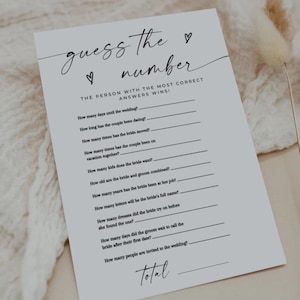 guess the
number
THE PERSON WITH THE MOST CORRECT
ANSWERS WINS!
How many days until the wedding?
How long has the couple been dating?
How many times has the bride moved?
How many times has the couple been on
vacation together?
How many kids does the bride want?
How old are the bride and groom combined?
How many years has the bride been at her job?
How many letters will be the bride's full name?
How many dresses did the bride try on before
she found the one?
How many days did the groom wait to call the
bride after their first date?
How many people are invited to the wedding?
Total